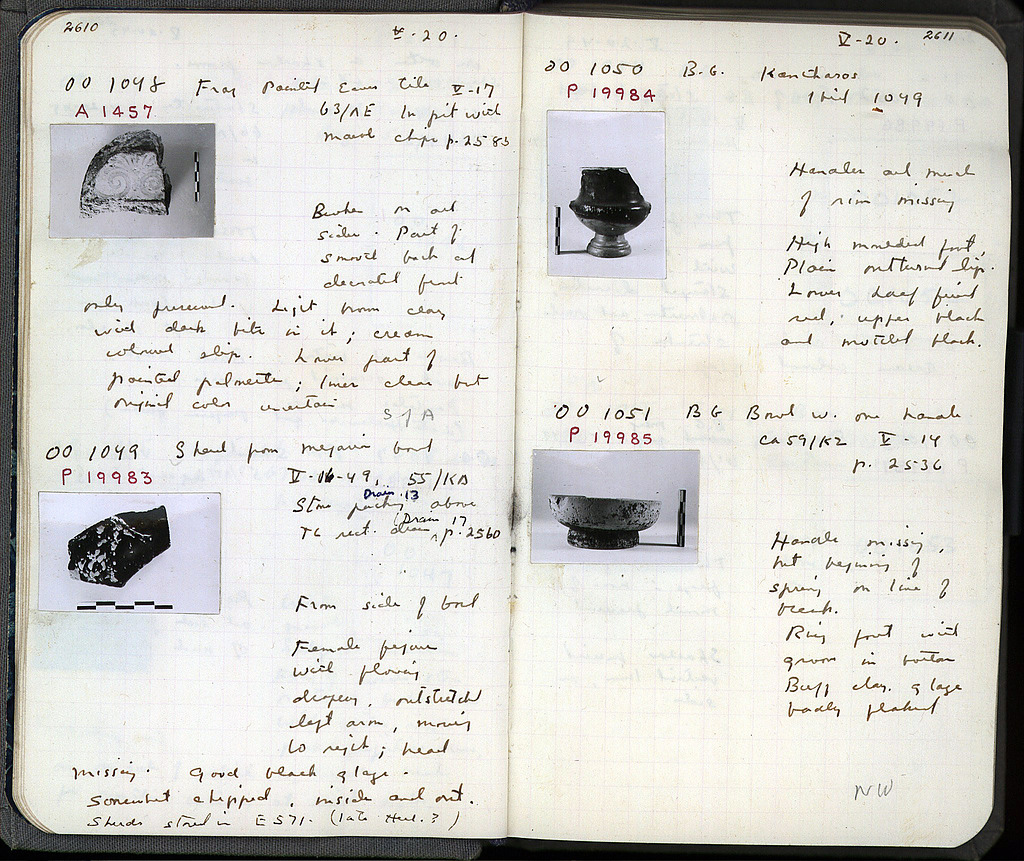 2610
V-20.
OO 1048 Frag Painted Eaves tile V-17
A 1457
63/ΛΕ In pit with
marble chips p. 2583
Broken on all
sides. Part of
smooth back and
decorated front
only preserved. Light brown clay
with dark bits in it; cream
coloured slip. Lower part of
painted palmette; lines clear but
original color uncertain
S/A
OO 1049 Sherd from megarian bowl
P 19983
V-16-49, 55/ΚΔ
Drain 13
Stone packing above
Drain 17
TC rect. drain, p. 2560
From side of bowl
Female figure
with flowing
drapery, outstretched
left arm, moving
to right; head
missing. Good black glaze.
Somewhat chipped, inside and out.
Sherds stored in E 571. (late Hell.?)
V-20.
2611
OO 1050 B.G. Kantharos
P 19984
1 bid 1049
Handles and much
of rim missing
High moulded foot,
Plain outturned lip.
Lower half fired
red, upper black
and mottled black.
OO 1051 BG Bowl w. one handle
P 19985
ca 59/ΚΖ V-14
p. 2536
Handle missing,
but beginning of
spring on line of
break.
Ring foot with
groove in bottom
Buff clay. glaze
badly flaked
NW